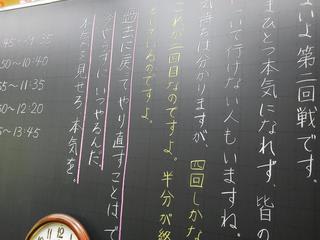 よいよ第二回戦です。
まひとつ本気になれず、皆の
ついて行けない人もいますね。
気持ちは分かりますが、四回しかな
これが二回目なのですよ。半分が終
としているのですよ。
過去に戻ってやり直すことはで
今やらずにいつやるんだ。
本気を見せろ!本気を。
45~
50~10:40
~11:35
50~12:20
5~13:45